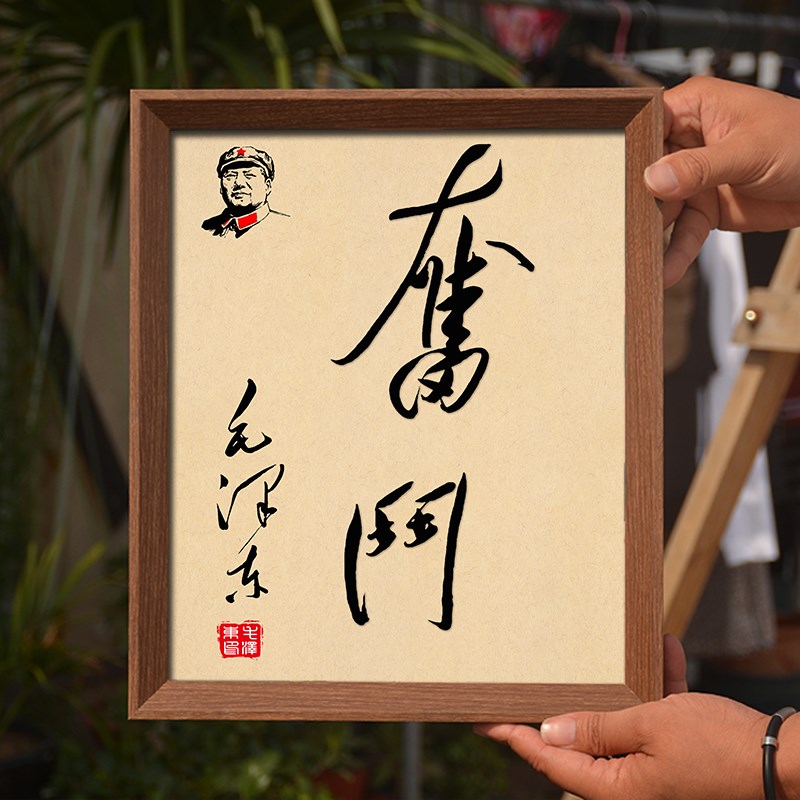 奮鬥
毛澤东
毛澤東印